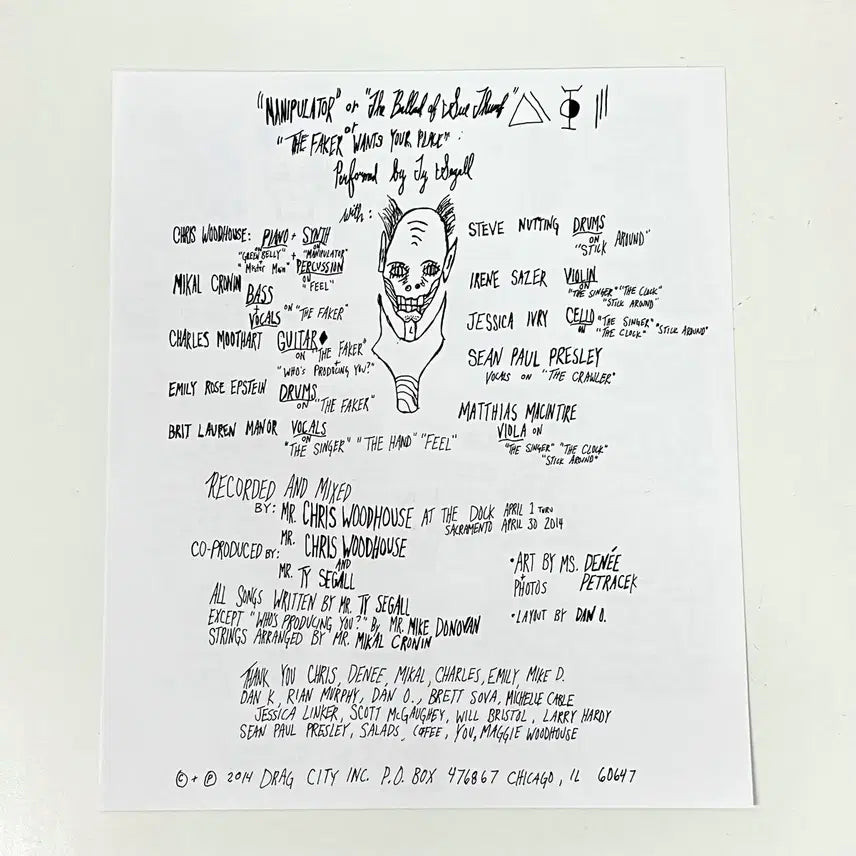 "MANIPULATOR" or "The Ballad of Sue Thumb"
or
"THE FAKER WANTS YOUR PLACE":
Performed by Ty Segall
with:
CHRIS WOODHOUSE: PIANO + SYNTH
ON ON
"GREEN BELLY" + "MANIPULATOR"
"Mister Main" PERCUSSION
ON
"FEEL"
MIKAL CRONIN BASS
+
VOCALS ON "THE FAKER"
CHARLES MOOTHART GUITAR
ON "THE FAKER"
+
"WHO'S PRODUCING YOU?"
EMILY ROSE EPSTEIN DRUMS
ON "THE FAKER"
BRIT LAUREN MANOR VOCALS
ON
"THE SINGER" "THE HAND" "FEEL"
STEVE NUTTING DRUMS
ON
"STICK AROUND"
IRENE SAZER VIOLIN
ON
"THE SINGER" "THE CLOCK"
"STICK AROUND"
JESSICA IVRY CELLO "THE SINGER"
ON "THE CLOCK" "STICK AROUND"
SEAN PAUL PRESLEY
VOCALS ON "THE CRAWLER"
MATTHIAS MCINTIRE
VIOLA ON
"THE SINGER" "THE CLOCK"
"STICK AROUND"
RECORDED AND MIXED
BY: MR. CHRIS WOODHOUSE AT THE DOCK APRIL 1 THRU
SACRAMENTO APRIL 30 2014
CO-PRODUCED BY: MR. CHRIS WOODHOUSE
AND
MR. TY SEGALL
ALL SONGS WRITTEN BY MR. TY SEGALL
EXCEPT "WHO'S PRODUCING YOU?" By MR. MIKE DONOVAN
STRINGS ARRANGED BY MR. MIKAL CRONIN
•ART BY MS. DENÉE
+
PHOTOS PETRACEK
•LAYOUT BY DAN O.
THANK YOU CHRIS, DENEE, MIKAL, CHARLES, EMILY, MIKE D.
DAN K, RIAN MURPHY, DAN O., BRETT SOVA, MICHELLE CABLE
JESSICA LINKER, SCOTT McGAUGHEY, WILL BRISTOL, LARRY HARDY
SEAN PAUL PRESLEY, SALADS, COFFEE, YOU, MAGGIE WOODHOUSE
© + ℗ 2014 DRAG CITY INC. P.O. BOX 476867 CHICAGO, IL 60647